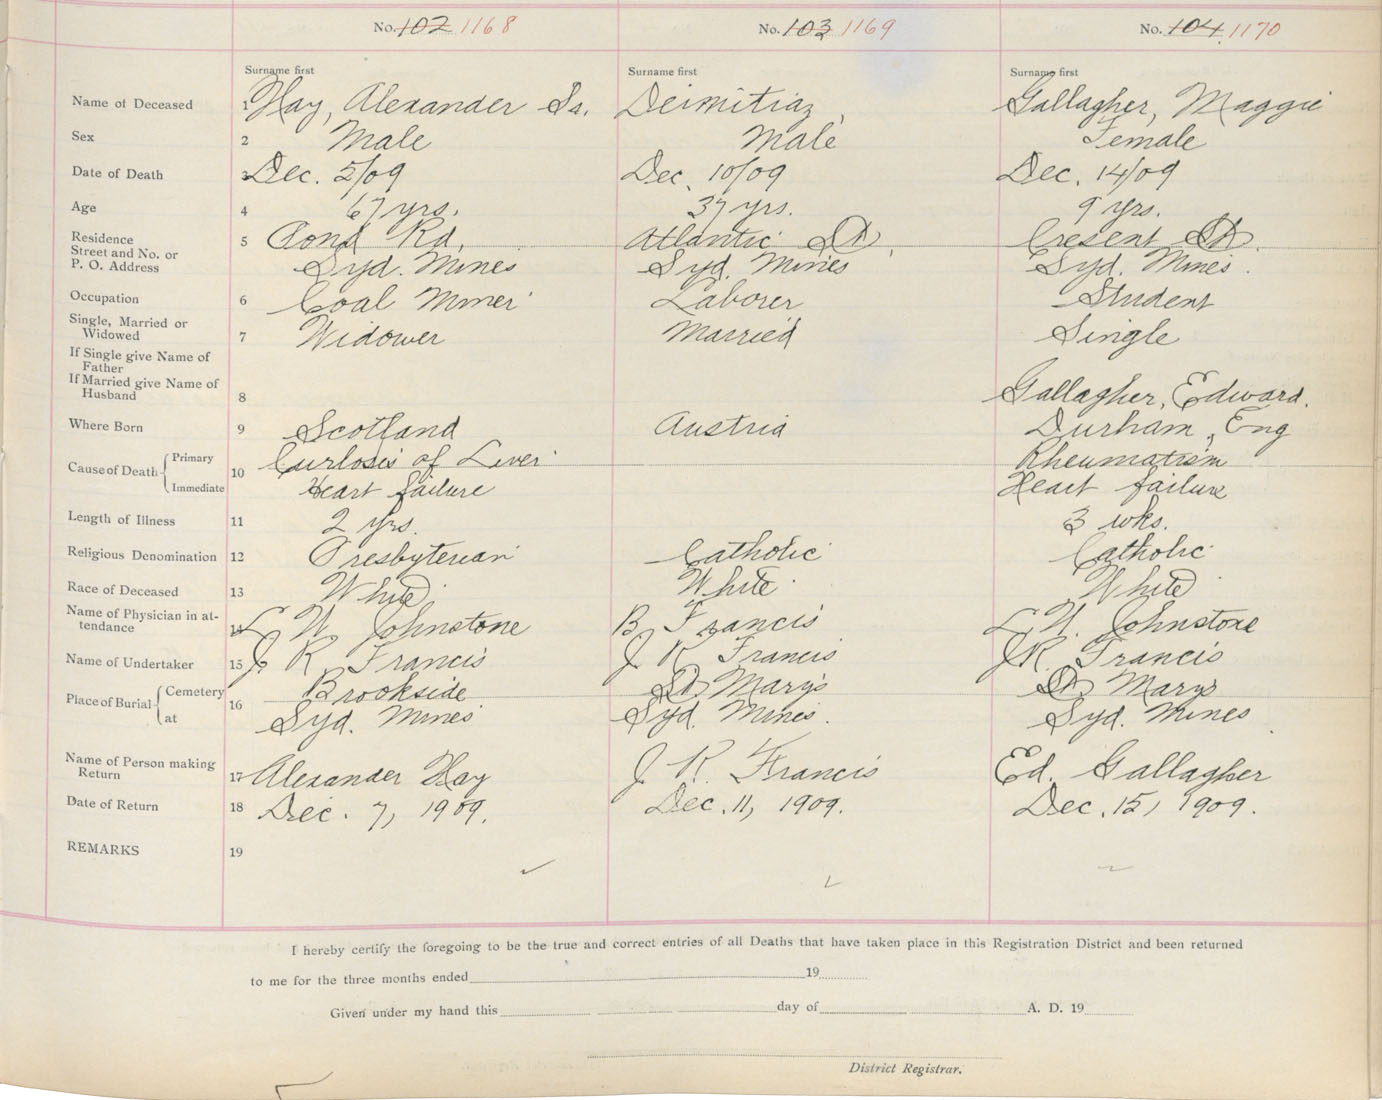 No. 102 1168 No. 103 1169 No. 104 1170
Surname first Surname first Surname first
Name of Deceased 1 Hay, Alexander Sr. Deimitiaz, Gallagher, Maggie
Sex 2 Male Male Female
Date of Death 3 Dec. 5/09 Dec. 10/09 Dec. 14/09
Age 4 67 yrs. 37 yrs. 9 yrs.
Residence 5 Pond Rd, Atlantic St, Cresent St.
Street and No. or
P. O. Address Syd. Mines Syd. Mines Syd. Mines.
Occupation 6 Coal Miner Laborer Student
Single, Married or
Widowed 7 Widower Married Single
If Single give Name of
Father
If Married give Name of
Husband 8 Gallagher, Edward.
Where Born 9 Scotland Austria Durham, Eng
Cause of Death Primary 10 Curlosis of Liver Rheumatism
Immediate Heart failure Heart failure
Length of Illness 11 2 yrs. 3 wks.
Religious Denomination 12 Presbyterian Catholic Catholic
Race of Deceased 13 White White White
Name of Physician in at-
tendance 14 L W Johnstone B Francis L. W. Johnstone
Name of Undertaker 15 J. R. Francis J R Francis J R. Francis
Place of Burial Cemetery 16 Brookside St Mary's St Marys
at Syd. Mines Syd. Mines. Syd. Mines
Name of Person making
Return 17 Alexander Hay J. R. Francis Ed. Gallagher
Date of Return 18 Dec. 7, 1909. Dec. 11, 1909. Dec. 15, 1909.
REMARKS 19
I hereby certify the foregoing to be the true and correct entries of all Deaths that have taken place in this Registration District and been returned
to me for the three months ended 19
Given under my hand this day of A. D. 19
District Registrar.